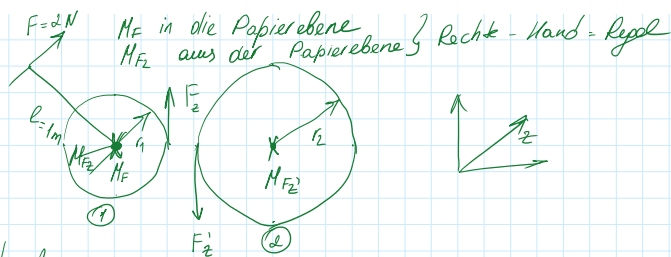 F=2N M_F in die Papierebene
M_Fz aus der Papierebene } Rechte-Hand=Regel
l=1m
F_z
r_1
r_2
z
M_Fz
M_F
M_Fz'
1
F_z'
2